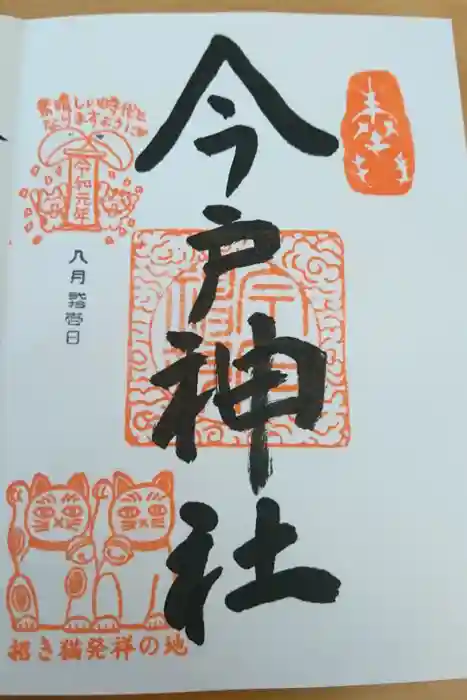 奉拝
今戸神社
素晴しい時代と
なりますように
令和元年
八月弐拾壱日
招き猫発祥の地